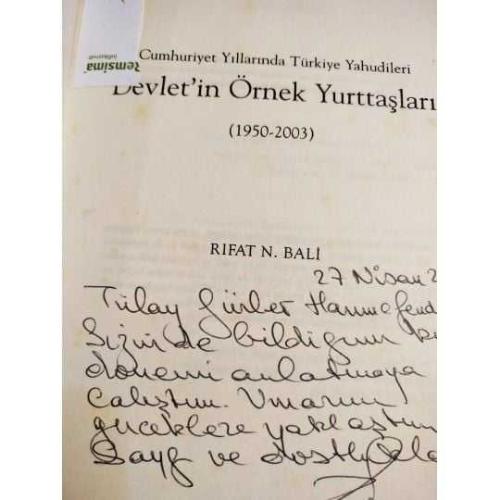 temsima
Cumhuriyet Yıllarında Türkiye Yahudileri
Devlet'in Örnek Yurttaşları
(1950-2003)
RIFAT N. BALİ
27 Nisan 2
Tülay Gürler Hanımefend
Sizin de bildiğiniz
dönemi anlatmaya
çalıştım. Umarım
yaklaştım
Saygı ve